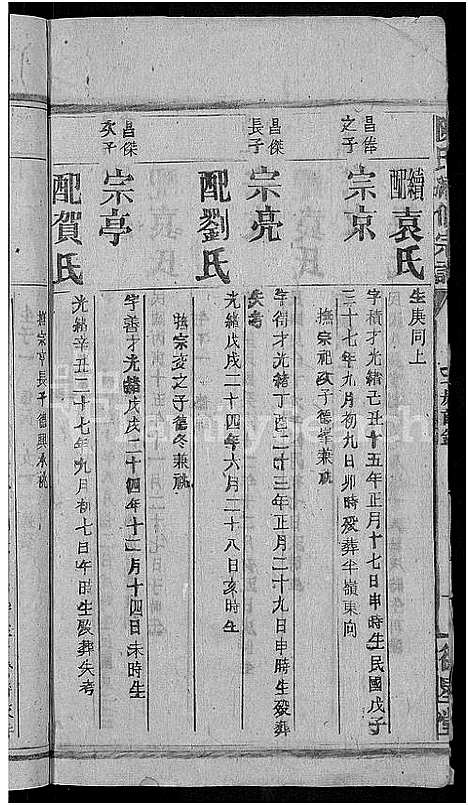 續配袁氏
生庚同上
昌偉之子
宗京
字積才光緒己丑十五年正月十七日申時生民國戊子
三十七年九月初九日卯時歿葬尘嶺東向
撫宗祀次子德崋兼祧
昌傑長子
宗亮
字得才光緒丁酉二十三年正月二十九日申時生歿葬
失考
配劉氏
光緒戊戌二十四年六月二十八日亥時生
撫宗变之子德冬兼祧
昌傑次子
宗亭
字善才光緒戊戌二十四年十二月十四日未時生
配賀氏
光緒辛丑二十七年九月初七日午時生歿葬失考
撫宗京長子德興承祧